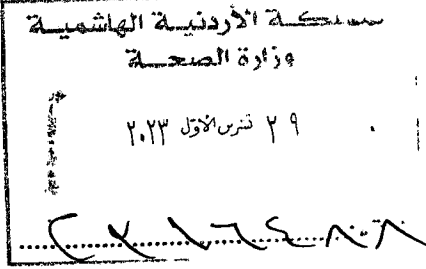 المملكة الأردنية الهاشمية
وزارة الصحة
٢٩ تشرين الأول ٢٠٢٣